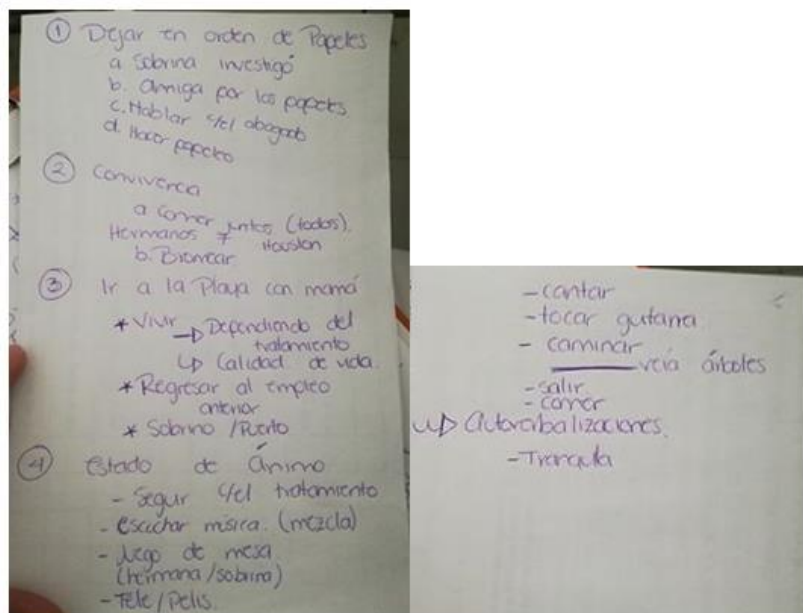 ① Dejar en orden de Papeles
a Sobrina investigó
b. Amiga por los papeles.
c. Hablar c/el abogado
d. Hacer papeleo
② Convivencia
a Comer juntos (todos).
Hermanos + Houston
b. Bromear
③ Ir a la Playa con mamá
* Vivir → Dependiendo del
tratamiento
↳ Calidad de vida.
* Regresar al empleo
anterior
* Sobrino / Puerto
④ Estado de Ánimo
- Seguir c/el tratamiento
- escuchar música. (mezcla)
- Juego de mesa
(hermana/sobrina)
- Tele / Pelis.
- cantar
- tocar guitarra
- caminar
veía árboles
- salir
- comer
↳ Autoverbalizaciones.
- Tranquila